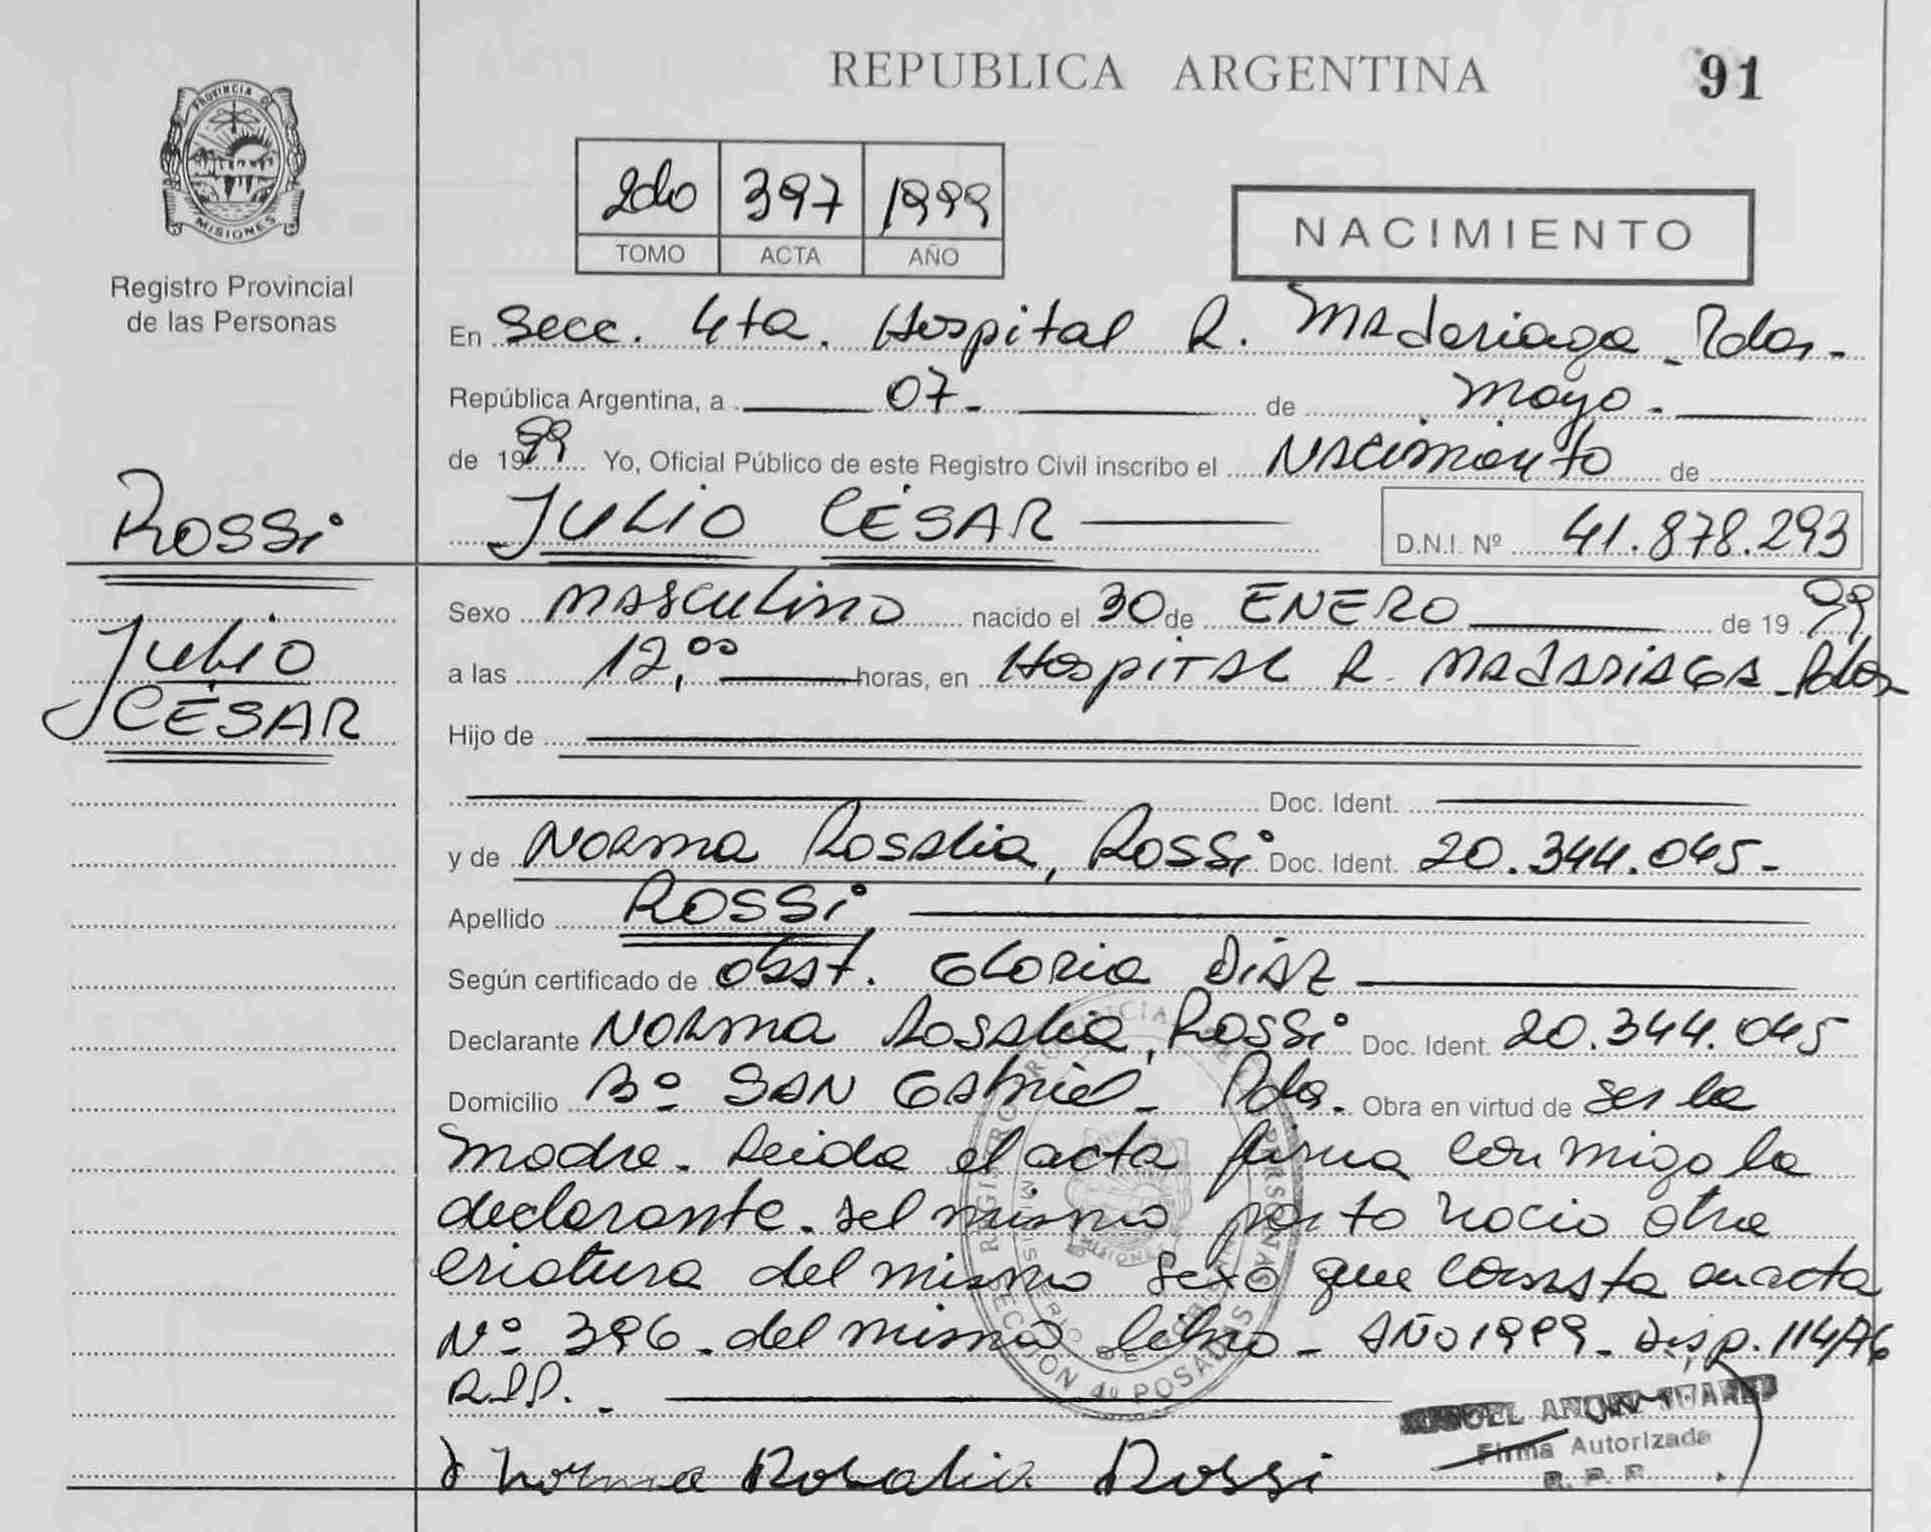 PROVINCIA DE
MISIONES
Registro Provincial
de las Personas
REPUBLICA ARGENTINA 91
2do 397 1999
TOMO ACTA AÑO
NACIMIENTO
En Secc. 4ta. Hospital R. Madariaga - Pdas -
República Argentina, a 07 - de mayo -
de 1999 Yo, Oficial Público de este Registro Civil inscribo el Nacimiento de
Rossi
JULIO CÉSAR D.N.I. Nº 41.878.293
Sexo masculino nacido el 30 de ENERO de 1999
Julio
CÉSAR
a las 12,00 horas, en Hospital R. Madariaga - Pdas -
Hijo de
Doc. Ident.
y de Norma Rosalia, Rossi Doc. Ident. 20.344.045 -
Apellido ROSSi
Según certificado de Obst. Gloria Diaz
Declarante Norma Rosalia, Rossi Doc. Ident. 20.344.045
Domicilio Bº San Gabriel - Pdas. Obra en virtud de ser la
madre. Leida el acta firma conmigo la
declarante. del mismo parto nacio otra
criatura del mismo sexo que consta en acta
Nº 396 - del mismo libro - AÑO 1999 - Disp. 114/96
R.P.P. -
Norma Rosalia Rossi
Firma Autorizada
R. P. P.
REGISTRO PROVINCIAL DE LAS PERSONAS
MINISTERIO DE
MISIONES
SECCION 4º POSADAS